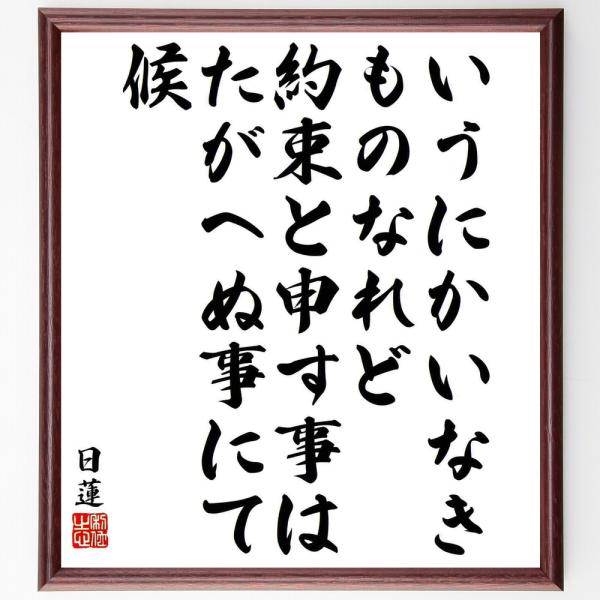 いうにかいなき
ものなれど
約束と申す事は
たがへぬ事にて
候
日蓮